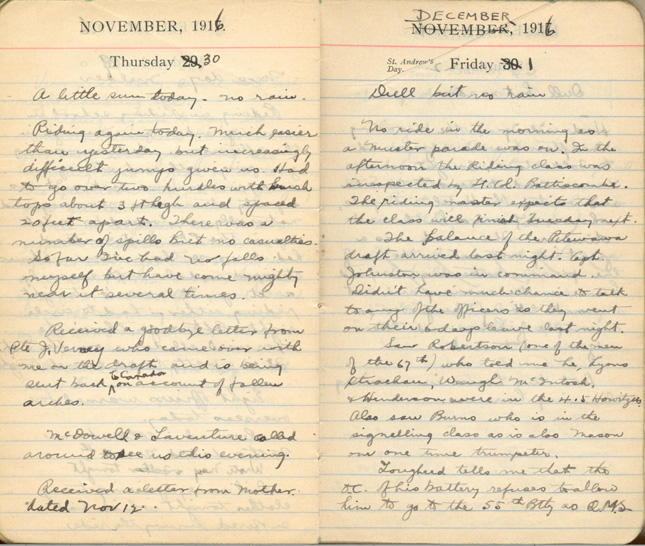 NOVEMBER, 1916.
Thursday 29, 30
A little sun today. no rain.
Riding again today. Much easier
than yesterday but increasingly
difficult jumps given us. Had
to go over two hurdles with brush
tops about 3 ft high and spaced
20 feet apart. There was a
number of spills but no casualties.
So far I've had no falls
myself but have come mighty
near it several times.
Received a goodbye letter from
Pte J. Verney who came over with
me on the draft and is being
sent back to Canada on account of fallen
arches.
McDowell & Laventure called
around to see us this evening.
Received a letter from Mother.
dated Nov 12.
DECEMBER
NOVEMBER, 1916
St. Andrew's
Day.
Friday 30. 1
Dull but no rain
No ride in the morning as
a muster parade was on. In the
afternoon the riding class was
inspected by Lt. Col. Battiscombe.
The riding master expects that
the class will finish Tuesday next.
The balance of the Petewawa
draft arrived last night. Capt
Johnston was in command.
Didn't have much chance to talk
to any of the officers as they went
on their 6 days leave last night.
Saw Robertson (one of the men
of the 67th) who told me he, Lyons
Strachan, Waugh McIntosh.
& Henderson were in the 4.5 Howitzers
Also saw Burns who is in the
signelling class as is also Mason
our one time trumpeter.
Lougheed tells me that the
O.C. of his battery refuses to allow
him to go to the 55th Bty as Q.M.S.